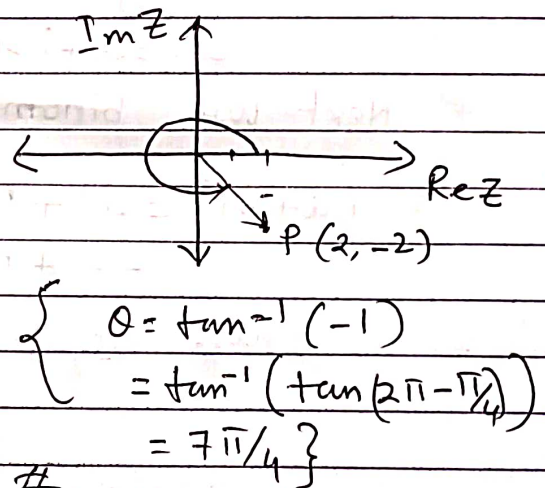 Im Z
Re Z
P (2, -2)
θ = tan⁻¹ (-1)
= tan⁻¹ (tan (2π - π/4))
= 7π/4 }
#